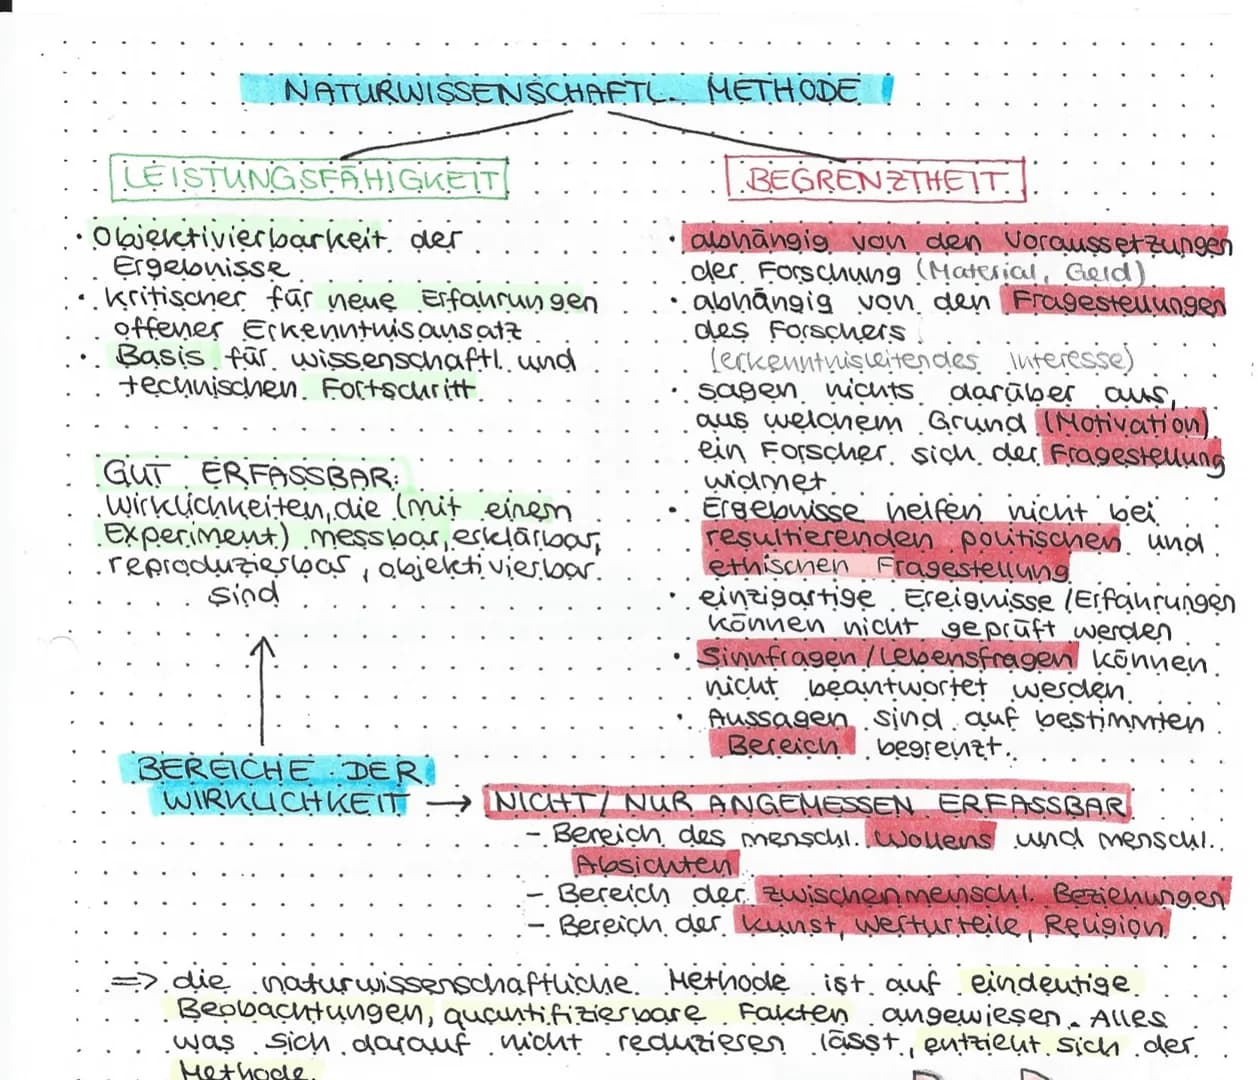 NATURWISSENSCHAFTL. METHODE
LEISTUNGSFÄHIGKEIT
• Objektivierbarkeit der
Ergebnisse
• kritischer für neue Erfahrungen
offener Erkenntnisansatz
• Basis für wissenschaftl. und
technischen Fortschritt
GUT ERFASSBAR:
Wirklichkeiten, die (mit einem
Experiment) messbar, erklärbar,
reproduzierbar, objektivierbar
sind
BEGRENZTHEIT
• abhängig von den Voraussetzungen
der Forschung (Material, Geld)
• abhängig von den Fragestellungen
des Forschers
(erkenntnisleitendes Interesse)
• sagen nichts darüber aus,
aus welchem Grund (Motivation)
ein Forscher sich der Fragestellung
widmet
• Ergebnisse helfen nicht bei
resultierenden politischen und
ethischen Fragestellung
• einzigartige Ereignisse / Erfahrungen
können nicht geprüft werden
• Sinnfragen / Lebensfragen können
nicht beantwortet werden.
• Aussagen sind auf bestimmten
Bereich begrenzt.
BEREICHE DER
WIRKLICHKEIT → NICHT / NUR ANGEMESSEN ERFASSBAR
- Bereich des menschl. Wollens und menschl.
Absichten
- Bereich der zwischenmenschl. Beziehungen
- Bereich der Kunst, Werturteile, Religion
=> die naturwissenschaftliche Methode ist auf eindeutige
Beobachtungen, quantifizierbare Fakten angewiesen. Alles
was sich darauf nicht reduzieren lässt, entzieht sich der
Methode.